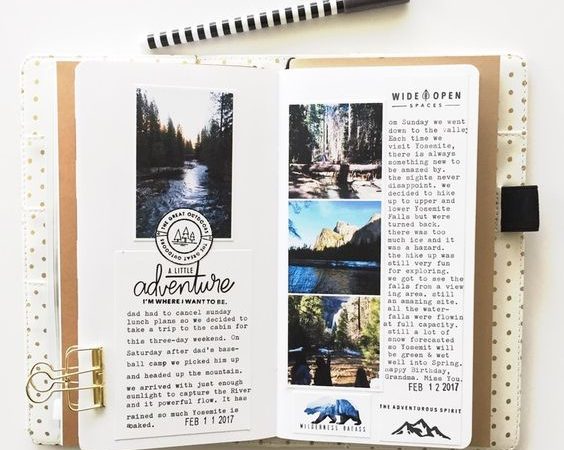 THE GREAT OUTDOORS
THE GREAT OUTDOORS
A LITTLE
adventure
I'M WHERE I WANT TO BE.
dad had to cancel sunday
lunch plans so we decided to
take a trip to the cabin for
this three-day weekend. On
Saturday after dad's base-
ball camp we picked him up
and headed up the mountain.
we arrived with just enough
sunlight to capture the River
and it powerful flow. It has
rained so much Yosemite is
soaked.
FEB 11 2017
WIDE OPEN
SPACES
on Sunday we went
down to the valley
Each time we
visit Yosemite,
there is always
something new to
be amazed by.
the sights never
disappoint. we
decided to hike
up to upper and
lower Yosemite
Falls but were
turned back.
there was too
much ice and it
was a hazard.
the hike up was
still very fun
for exploring.
we got to see the
falls from a view
ing area. still
an amazing site.
all the water-
falls were flowin
at full capacity.
still a lot of
snow forecasted
we Yosemit will
be green & wet
well into Spring.
Happy Birthday,
Grandma. Miss You.
FEB 12 2017
WILDERNESS BADASS
THE ADVENTUROUS SPIRIT